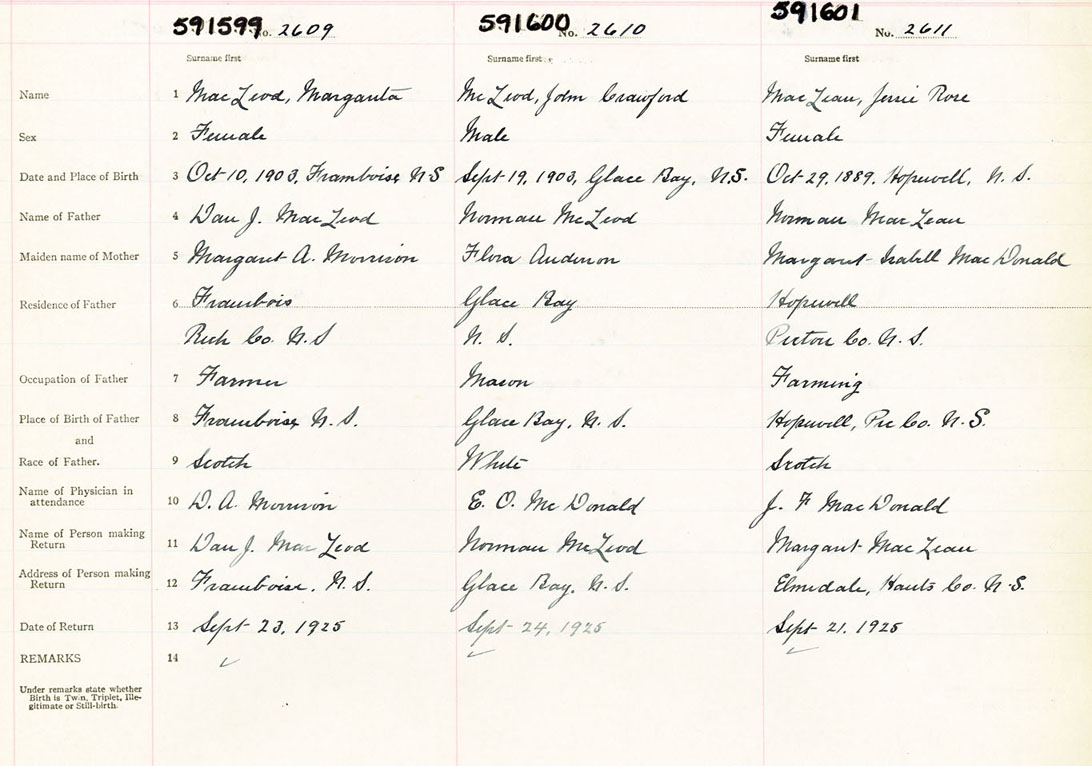 591599 No. 2609 591600 No. 2610 591601 No. 2611
Surname first Surname first Surname first
Name 1 MacLeod, Margareta McLeod, John Crawford MacLean, Jessie Rose
Sex 2 Female Male Female
Date and Place of Birth 3 Oct 10, 1903, Framboise N.S Sept 19, 1903, Glace Bay, N.S. Oct 29, 1889, Hopewell, N. S.
Name of Father 4 Dan J. MacLeod Norman McLeod Norman MacLean
Maiden name of Mother 5 Margaret A. Morrison Flora Anderson Margaret Isabell MacDonald
Residence of Father 6 Frambois Glace Bay Hopewell
Rich Co. N.S N. S. Pictou Co. N.S.
Occupation of Father 7 Farmer Mason Farming
Place of Birth of Father 8 Framboise N.S. Glace Bay, N.S. Hopewell, Pic Co. N.S.
and
Race of Father. 9 Scotch White Scotch
Name of Physician in
attendance 10 D. A. Morrison E. O. McDonald J. F MacDonald
Name of Person making
Return 11 Dan J. MacLeod Norman McLeod Margaret MacLean
Address of Person making
Return 12 Framboise, N.S. Glace Bay, N.S. Elmsdale, Hants Co. N.S.
Date of Return 13 Sept 23, 1925 Sept 24, 1925 Sept 21, 1925
REMARKS 14
Under remarks state whether
Birth is Twin, Triplet, Ille-
gitimate or Still-birth.